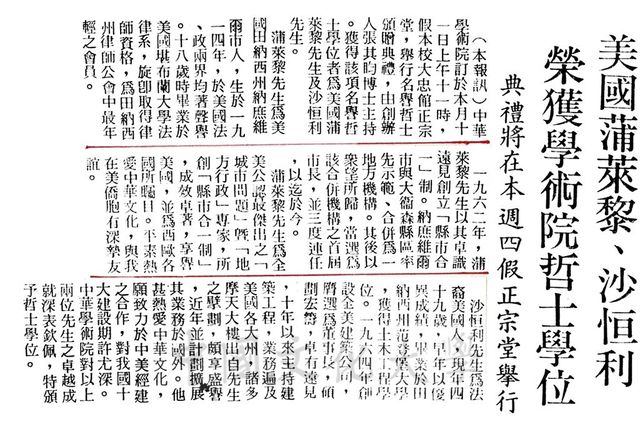 美國蒲萊黎、沙恒利
榮獲學術院哲士學位
典禮將在本週四假正宗堂舉行
（本報訊）中華
學術院訂於本月十
一日上午十一時，
假本校大忠館正宗
堂，舉行名譽哲士
頒贈典禮，由創辦
人張其昀博士主持
。獲得該項名譽哲
士學位者為美國蒲
萊黎先生及沙恒利
先生。
蒲萊黎先生爲美
國田納西州納庶維
爾市人，生於一九
一四年，於美國法
、政兩界均著聲譽
。十八歲時畢業於
美國堪布蘭大學法
律系，旋卽取得律
師資格，爲田納西
州律師公會中最年
輕之會員。
一九六二年，蒲
萊黎先生以其卓識
遠見創立「縣市合
一」制。納庶維爾
市與大衞森縣區率
先示範、合併爲一
地方機構。其後以
衆望所歸，當選爲
該合併機構之首屆
市長，並三度連任
，以迄於今。
蒲萊黎先生爲全
美公認最傑出之「
城市問題」曁「地
方行政」專家，所
創「縣市合一制」
，成效卓著，享譽
美國，並爲西歐各
國所矚目。平素熱
愛中華文化，與我
在美僑胞有深摯友
誼。
沙恒利先生爲法
裔美國人，現年四
十九歲，早年以優
異成績，畢業於田
納西州范達堡大學
，獲得土木工程學
位。一九六四年創
設全美建築公司，
膺選爲董事長，碩
劃宏籌，卓有遠見
。十年以來主持建
築工程，業務遍及
美國各大州，諸多
摩天大樓出自先生
之擘劃，頗享盛譽
，近年並計劃擴展
其業務於國外。他
甚熱愛中華文化，
願致力於中美經建
之合作，對我國十
大建設期許尤深。
中華學術院對以上
兩位先生之卓越成
就深表欽佩，特頒
予哲士學位。